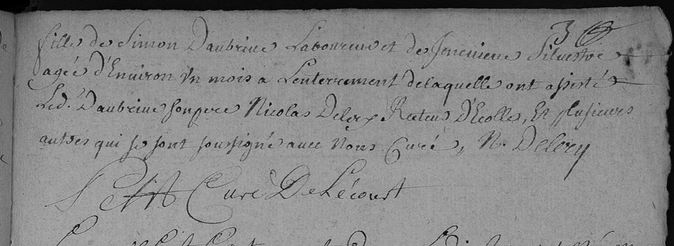 fille de Simon Daubrive Laboureur et de Jenevieve Silvestre
agée d'Environ Un mois a Lenterrement delaquelle ont assisté
Led. Daubrive son pere Nicolas Delery Recteur D'Ecolles, Et plusieurs
autres qui se sont soussigné avec Nous Curé, N. Delery
Petit Curé De Lécourt